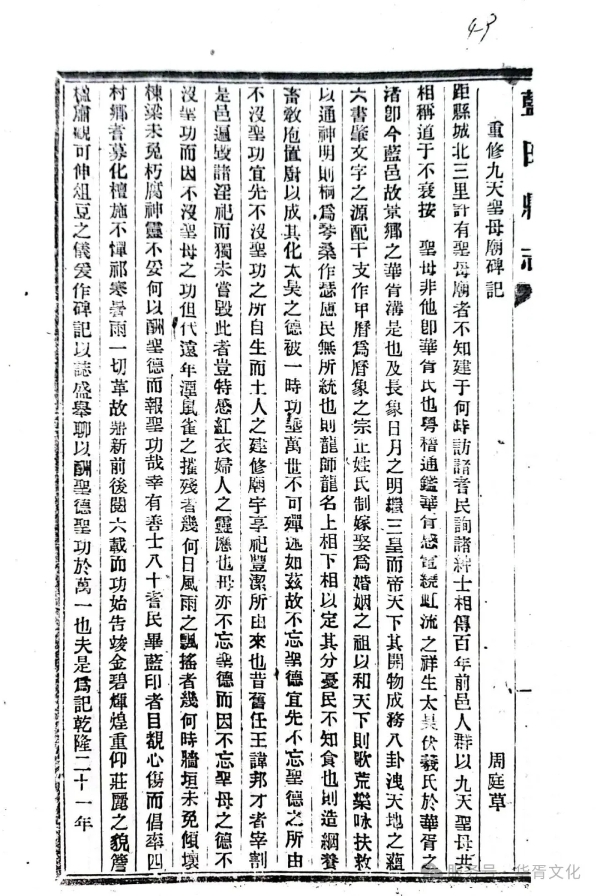 43
藍田縣志
重修九天聖母廟碑記
周庭草
距縣城北三里許有聖母廟者不知建于何時訪諸耆民詢諸紳士相傳百年前邑人群以九天聖母共
相稱道于不衰按 聖母非他卽華胥氏也粤稽通鑑華胥感電繞虹流之祥生太昊伏羲氏於華胥之
渚卽今藍邑故景鄉之華胥溝是也及長象日月之明繼三皇而帝天下其開物成務八卦洩天地之蘊
六書肇文字之源配干支作甲曆爲曆象之宗正姓氏制嫁娶爲婚姻之祖以和天下則歌荒樂咏扶救
以通神明則桐爲琴桑作瑟慮民無所統也則龍師龍名上相下相以定其分憂民不知食也則造網養
畜教庖置廚以成其化太昊之德被一時功垂萬世不可殫述如茲故不忘聖德宜先不忘聖德之所由
不沒聖功宜先不沒聖功之所自生而土人之建修廟宇享祀豐潔所由來也昔舊任王諱邦才者宰割
是邑遍毀諸淫祀而獨未嘗毀此者豈特感紅衣婦人之靈應也毋亦不忘聖德而因不忘聖母之德不
沒聖功而因不沒聖母之功但代遠年湮鼠雀之摧残者幾何日風雨之飄搖者幾何時牆垣未免傾壞
棟梁未免朽腐神靈不妥何以酬聖德而報聖功哉幸有善士八十耆民畢藍印者目覩心傷而倡率四
村鄉者募化檀施不憚祁寒暑雨一切革故鼎新前後閱六載而功始告竣金碧輝煌重仰莊麗之貌簷
楹肅觀可伸俎豆之儀爰作碑記以誌盛舉聊以酬聖德聖功於萬一也夫是爲記乾隆二十一年
华胥文化